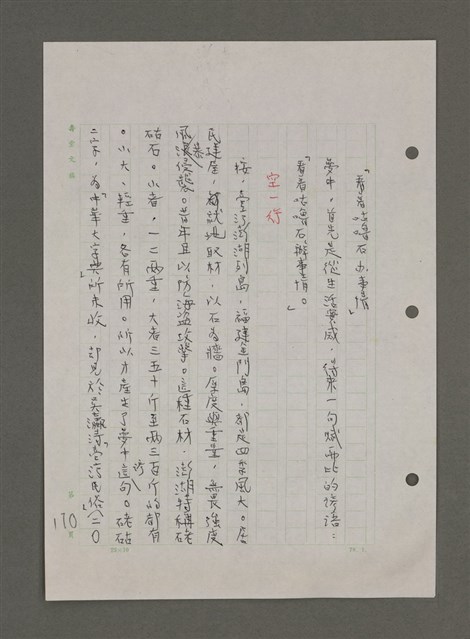 「看看咕嚕石办事情」
夢中，首先是從生活實感，後來一句賦而比的
「看看咕嚕石辦事情。」
空一行
按，臺灣澎湖列島，福建金門島，都是四季風大。居
民建屋，都就地取材，以石為牆。厚度與重量，無畏強度
風暴侵襲。昔年且以防海盜攻擊。這種石材，澎湖特稱硓
𥑮石。小者，一二兩重，大者三五十斤至兩三百斤的都有
。小大、輕重，各有所用。所以才產生了夢中這句詩。硓𥑮
二字，為「中華大字典」所未收，却見於吳瀛濤「臺灣民俗」(二〇
170
頁